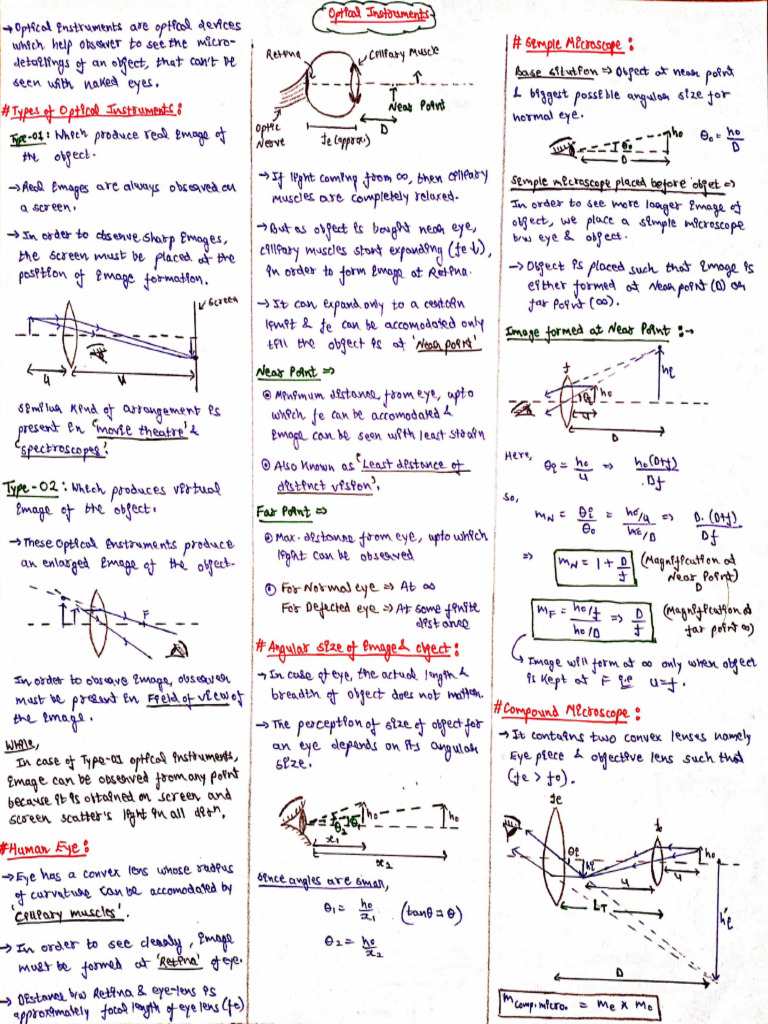 Optical Instruments
→ Optical Instruments are optical devices
which help observer to see the micro-
detailings of an object, that can't be
seen with naked eyes.
# Types of Optical Instruments:
Type-01: Which produce real Image of
the object.
→ Real Images are always observed on
a screen.
→ In order to observe sharp Images,
the screen must be placed at the
position of Image formation.
Screen
u
similar kind of arrangement is
present in 'movie theatre' &
'spectroscopes'.
Type-02: Which produces virtual
Image of the object.
→ These Optical Instruments produce
an enlarged Image of the object.
F
In order to observe Image, observer
must be present in Field of view of
the Image.
While,
In case of Type-01 optical instruments,
Image can be observed from any point
because it is obtained on screen and
screen scatter's light in all dirn.
# Human Eye:
→ Eye has a convex lens whose radius
of curvature can be accomodated by
'Cilliary muscles'.
→ In order to see clearly, Image
must be formed at 'Retina' of eye.
→ Distance b/w Retina & eye-lens is
approximately focal length of eye lens (fe)
Retina
Cilliary Muscle
Near Point
Optic
Nerve
fe (approx.)
D
→ If light coming from ∞, then cilliary
muscles are completely relaxed.
→ But as object is bought near eye,
cilliary muscles start expanding (fe↓),
in order to form Image at Retina.
→ It can expand only to a certain
limit & fe can be accomodated only
till the object is at 'Near point'
Near Point ⇒
Minimum distance from eye, upto
which fe can be accomodated &
Image can be seen with least strain
Also known as 'Least distance of
distinct vision'.
Far Point ⇒
Max. distance from eye, upto which
light can be observed
For Normal eye ⇒ At ∞
For Defected eye ⇒ At some finite
distance
# Angular size of Image & object:
→ In case of eye, the actual length &
breadth of object does not matter.
→ The perception of size of object for
an eye depends on its angular
size.
θ2 θ1 ho ho
x1
x2
Since angles are small,
θ1 = ho/x1 (tanθ = θ)
θ2 = ho/x2
# Simple Microscope:
Base situtation ⇒ Object at near point
& biggest possible angular size for
normal eye.
θo ho θo = ho/D
D
Simple microscope placed before objet ⇒
In order to see more larger Image of
object, we place a simple microscope
b/w eye & object.
→ Object is placed such that Image is
either formed at Near point (D) or
far point (∞).
Image formed at Near Point :→
f
θi ho hi
u
D
Here,
θi = ho/u ⇒ ho(D+f)/Df
So,
mN = θi/θo = ho/u / ho/D ⇒ D.(D+f)/Df
⇒ mN = 1 + D/f (Magnification at
Near Point)
D
mF = ho/f / ho/D ⇒ D/f (Magnification at
far point ∞)
Image will form at ∞ only when object
is kept at F i.e u=f.
# Compound Microscope:
→ It contains two convex lenses namely
Eye piece & objective lens such that
(fe > fo).
fe
fo
θi hi ho
u u
LT
h'i
D
mcomp.micro. = me x mo